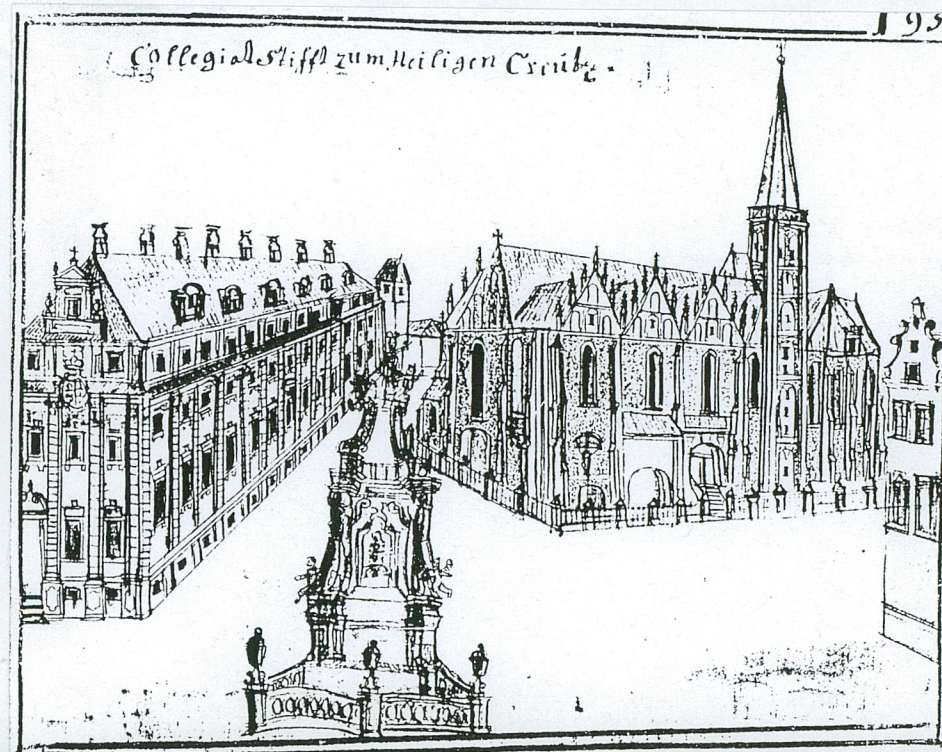 193
Collegial Stifft zum Heiligen Creütz.